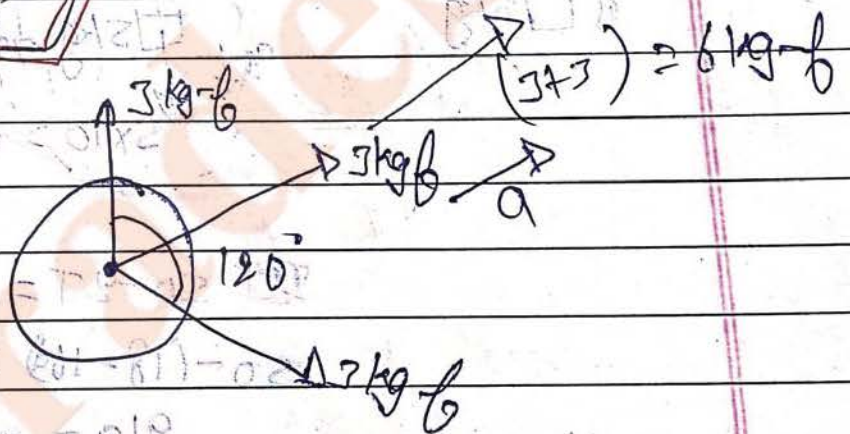 3 kg-f
(3+3) = 6 kg-f
3 kgf
a
120°
3 kg-f